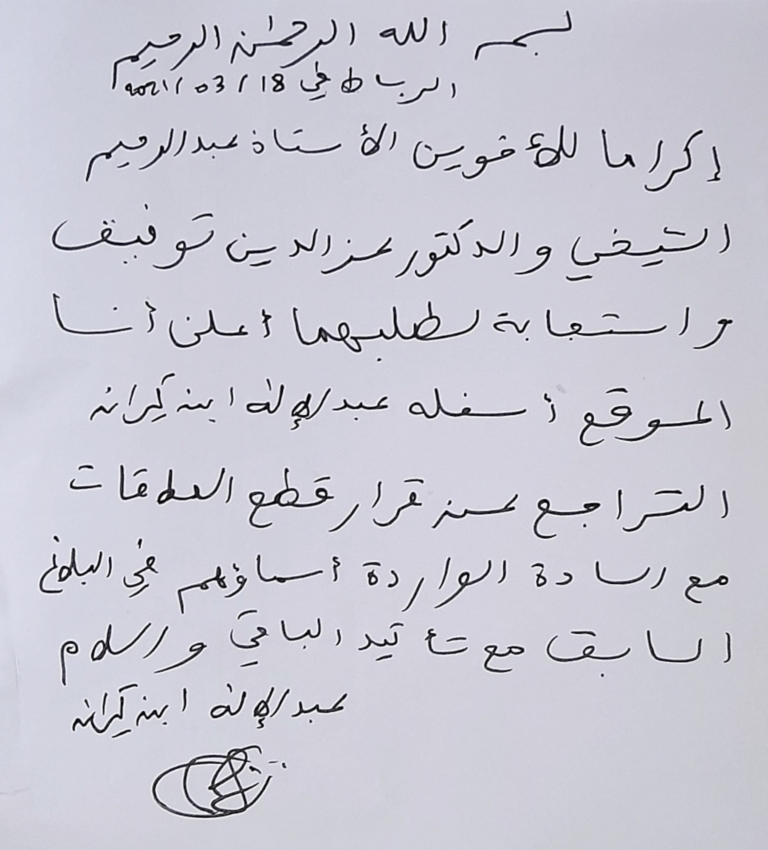 بسم الله الرحمٰن الرحيم
الرباط في 18/03/2021
إكراما للأخوين الأستاذ عبد الرحيم
الشيخي والدكتور عز الدين توفيق
واستجابة لطلبهما أعلن أنا
الموقع أسفله عبد الإله ابن كيران
التراجع عن قرار قطع العلاقات
مع السادة الواردة أسماؤهم في البلاغ
السابق مع تأكيد الباقي والسلام
عبد الإله ابن كيران